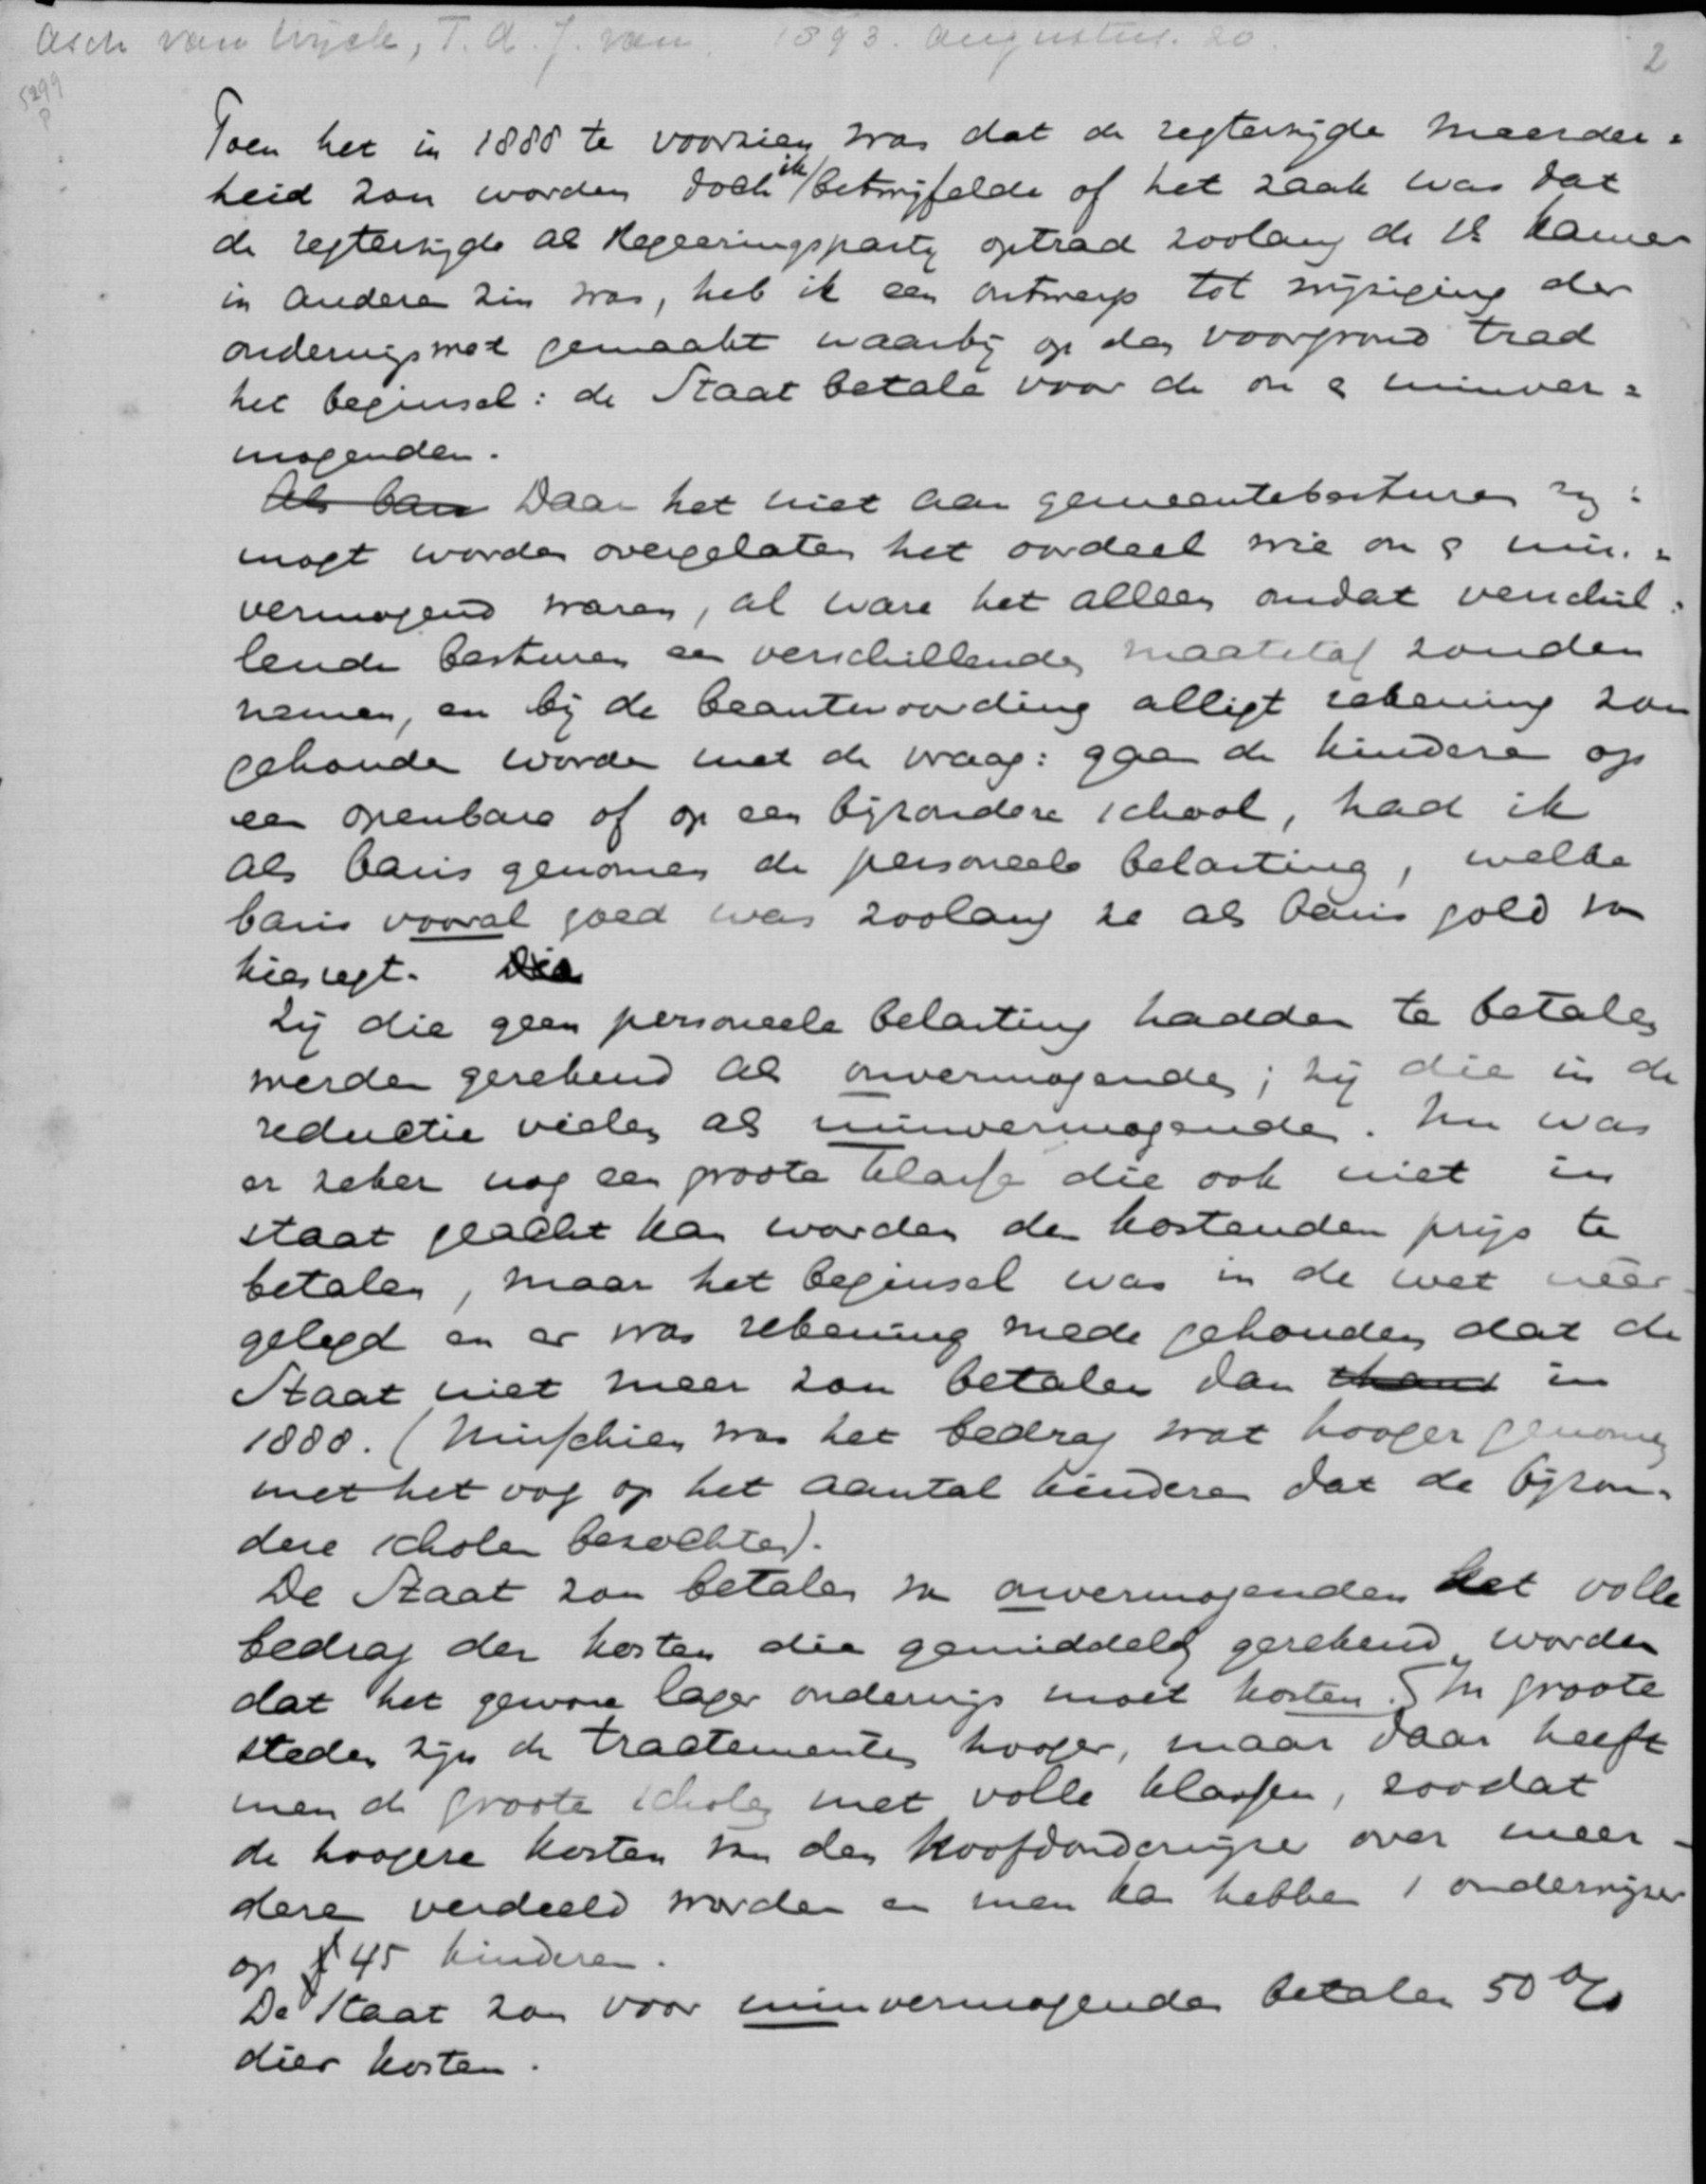 Asch van Wijck, T. A. J. van. 1893. Augustus. 20.
2
5299
P
Toen het in 1888 te voorzien was dat de regterzijde meerder=
heid zou worden doch ik betwijfelde of het zaak was dat
de regterzijde als Regeeringspartij optrad zoolang de 1e Kamer
in andere zin was, heb ik een ontwerp tot wijziging der
onderwijswet gemaakt waarbij op den voorgrond trad
het beginsel: de Staat betale voor de on & minver=
mogenden.
Als bas Daar het niet aan gemeentebesturen
mogt worden overgelaten het oordeel wie on & min=
vermogend waren, al ware het alleen omdat verschil=
lende besturen een verschillenden maatstaf zouden
nemen, en bij de beantwoording alligt rekening zou
gehouden worden met de vraag: gaan de kinderen op
een openbare of op een bijzondere school, had ik
als basis genomen de personeele belasting, welke
basis vooral goed was zoolang ze als basis gold van
kiesregt. Die
Zij die geen personeele belasting hadden te betalen
werden gerekend als onvermogenden; zij die in de
reductie vielen als minvermogenden. Nu was
er zeker nog een groote klasse die ook niet in
staat geacht kan worden den kostenden prijs te
betalen, maar het beginsel was in de wet neêr-
gelegd en er was rekening mede gehouden dat de
Staat niet meer zou betalen dan thans in
1888. (Misschien was het bedrag wat hooger genomen
met het oog op het aantal kinderen dat de bijzon=
dere scholen bezochten).
De Staat zou betalen van onvermogenden het volle
bedrag der kosten die gemiddeld gerekend worden
dat het gewone lager onderwijs moet kosten. In groote
steden zijn de tractementen hooger, maar daar heeft
men de groote scholen met volle klassen, zoodat
de hoogere kosten van den hoofdonderwijzer over meer-
dere verdeeld worden en men kan hebben 1 onderwijzer
op 45 kinderen.
De Staat zou voor minvermogenden betalen 50 %
dier kosten.